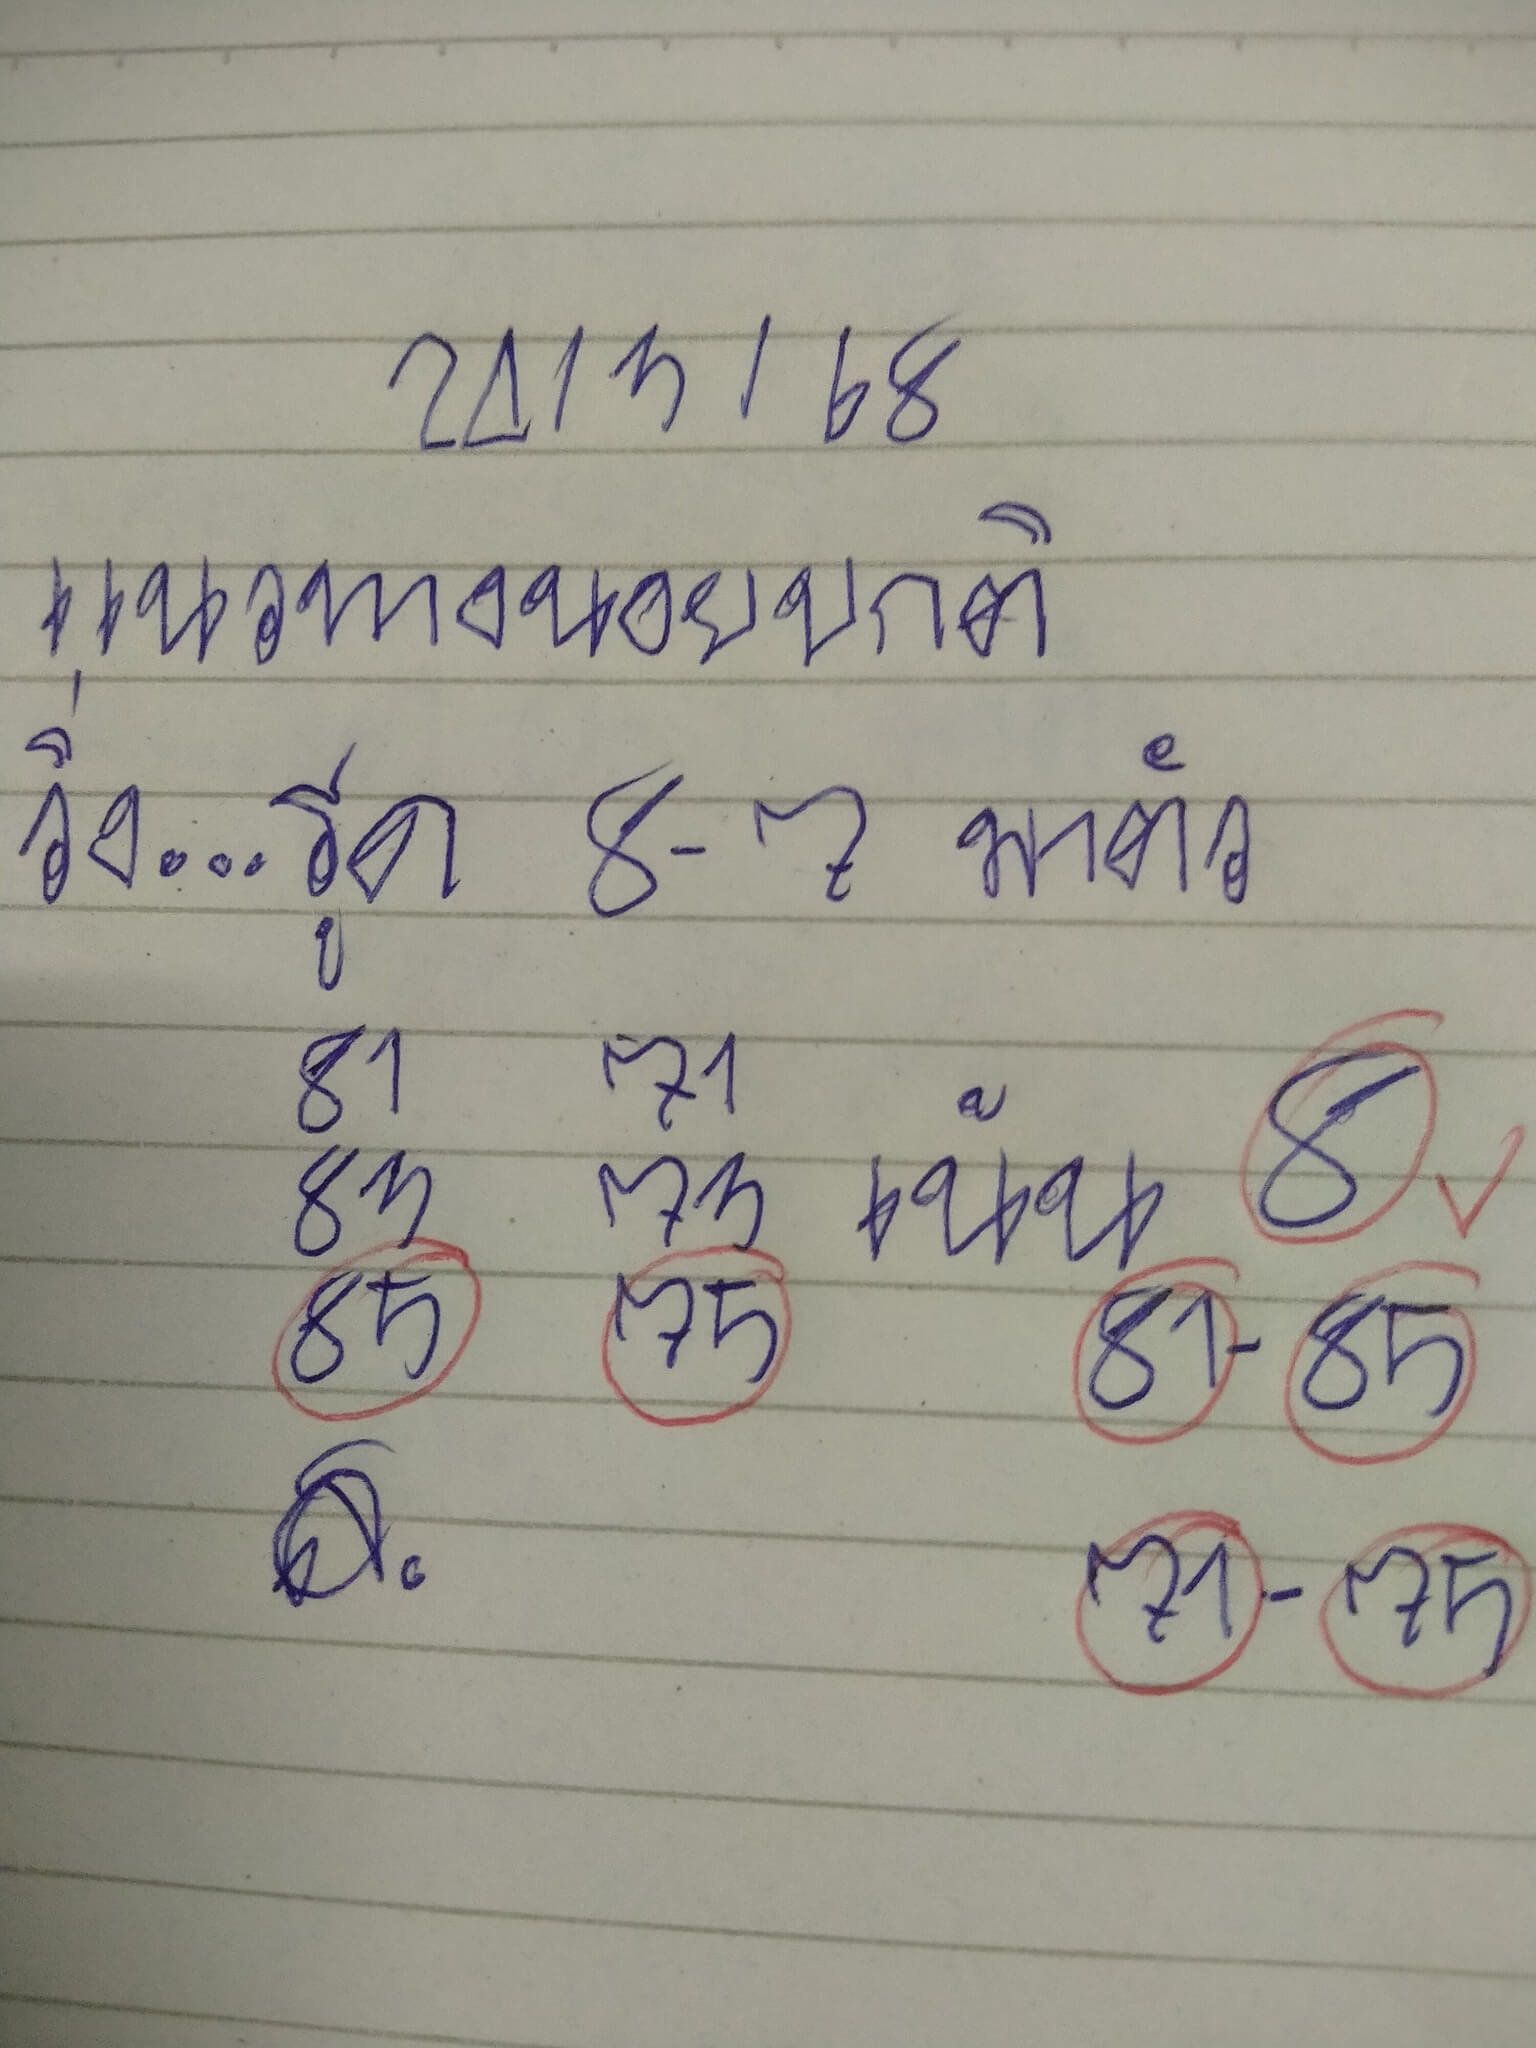 24/3/68
แนวทางนอยปกติ
วิ่ง...รูด 8-7 มาตัว
81 71
83 73 เน้น 8
85 75 81-85
71-75